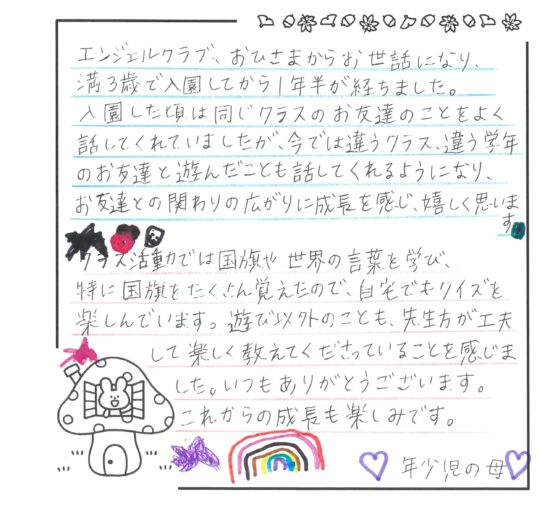 エンジェルクラブ、おひさまからお世話になり、
満3歳で入園してから1年半が経ちました。
入園した頃は同じクラスのお友達のことをよく
話してくれていましたが、今では違うクラス、違う学年
のお友達と遊んだことも話してくれるようになり、
お友達との関わりの広がりに成長を感じ、嬉しく思います。
クラス活動では国旗や世界の言葉を学び、
特に国旗をたくさん覚えたので、自宅でもクイズを
楽しんでいます。遊び以外のことも、先生方が工夫
して楽しく教えてくださっていることを感じま
した。いつもありがとうございます。
これからの成長も楽しみです。
年少児の母